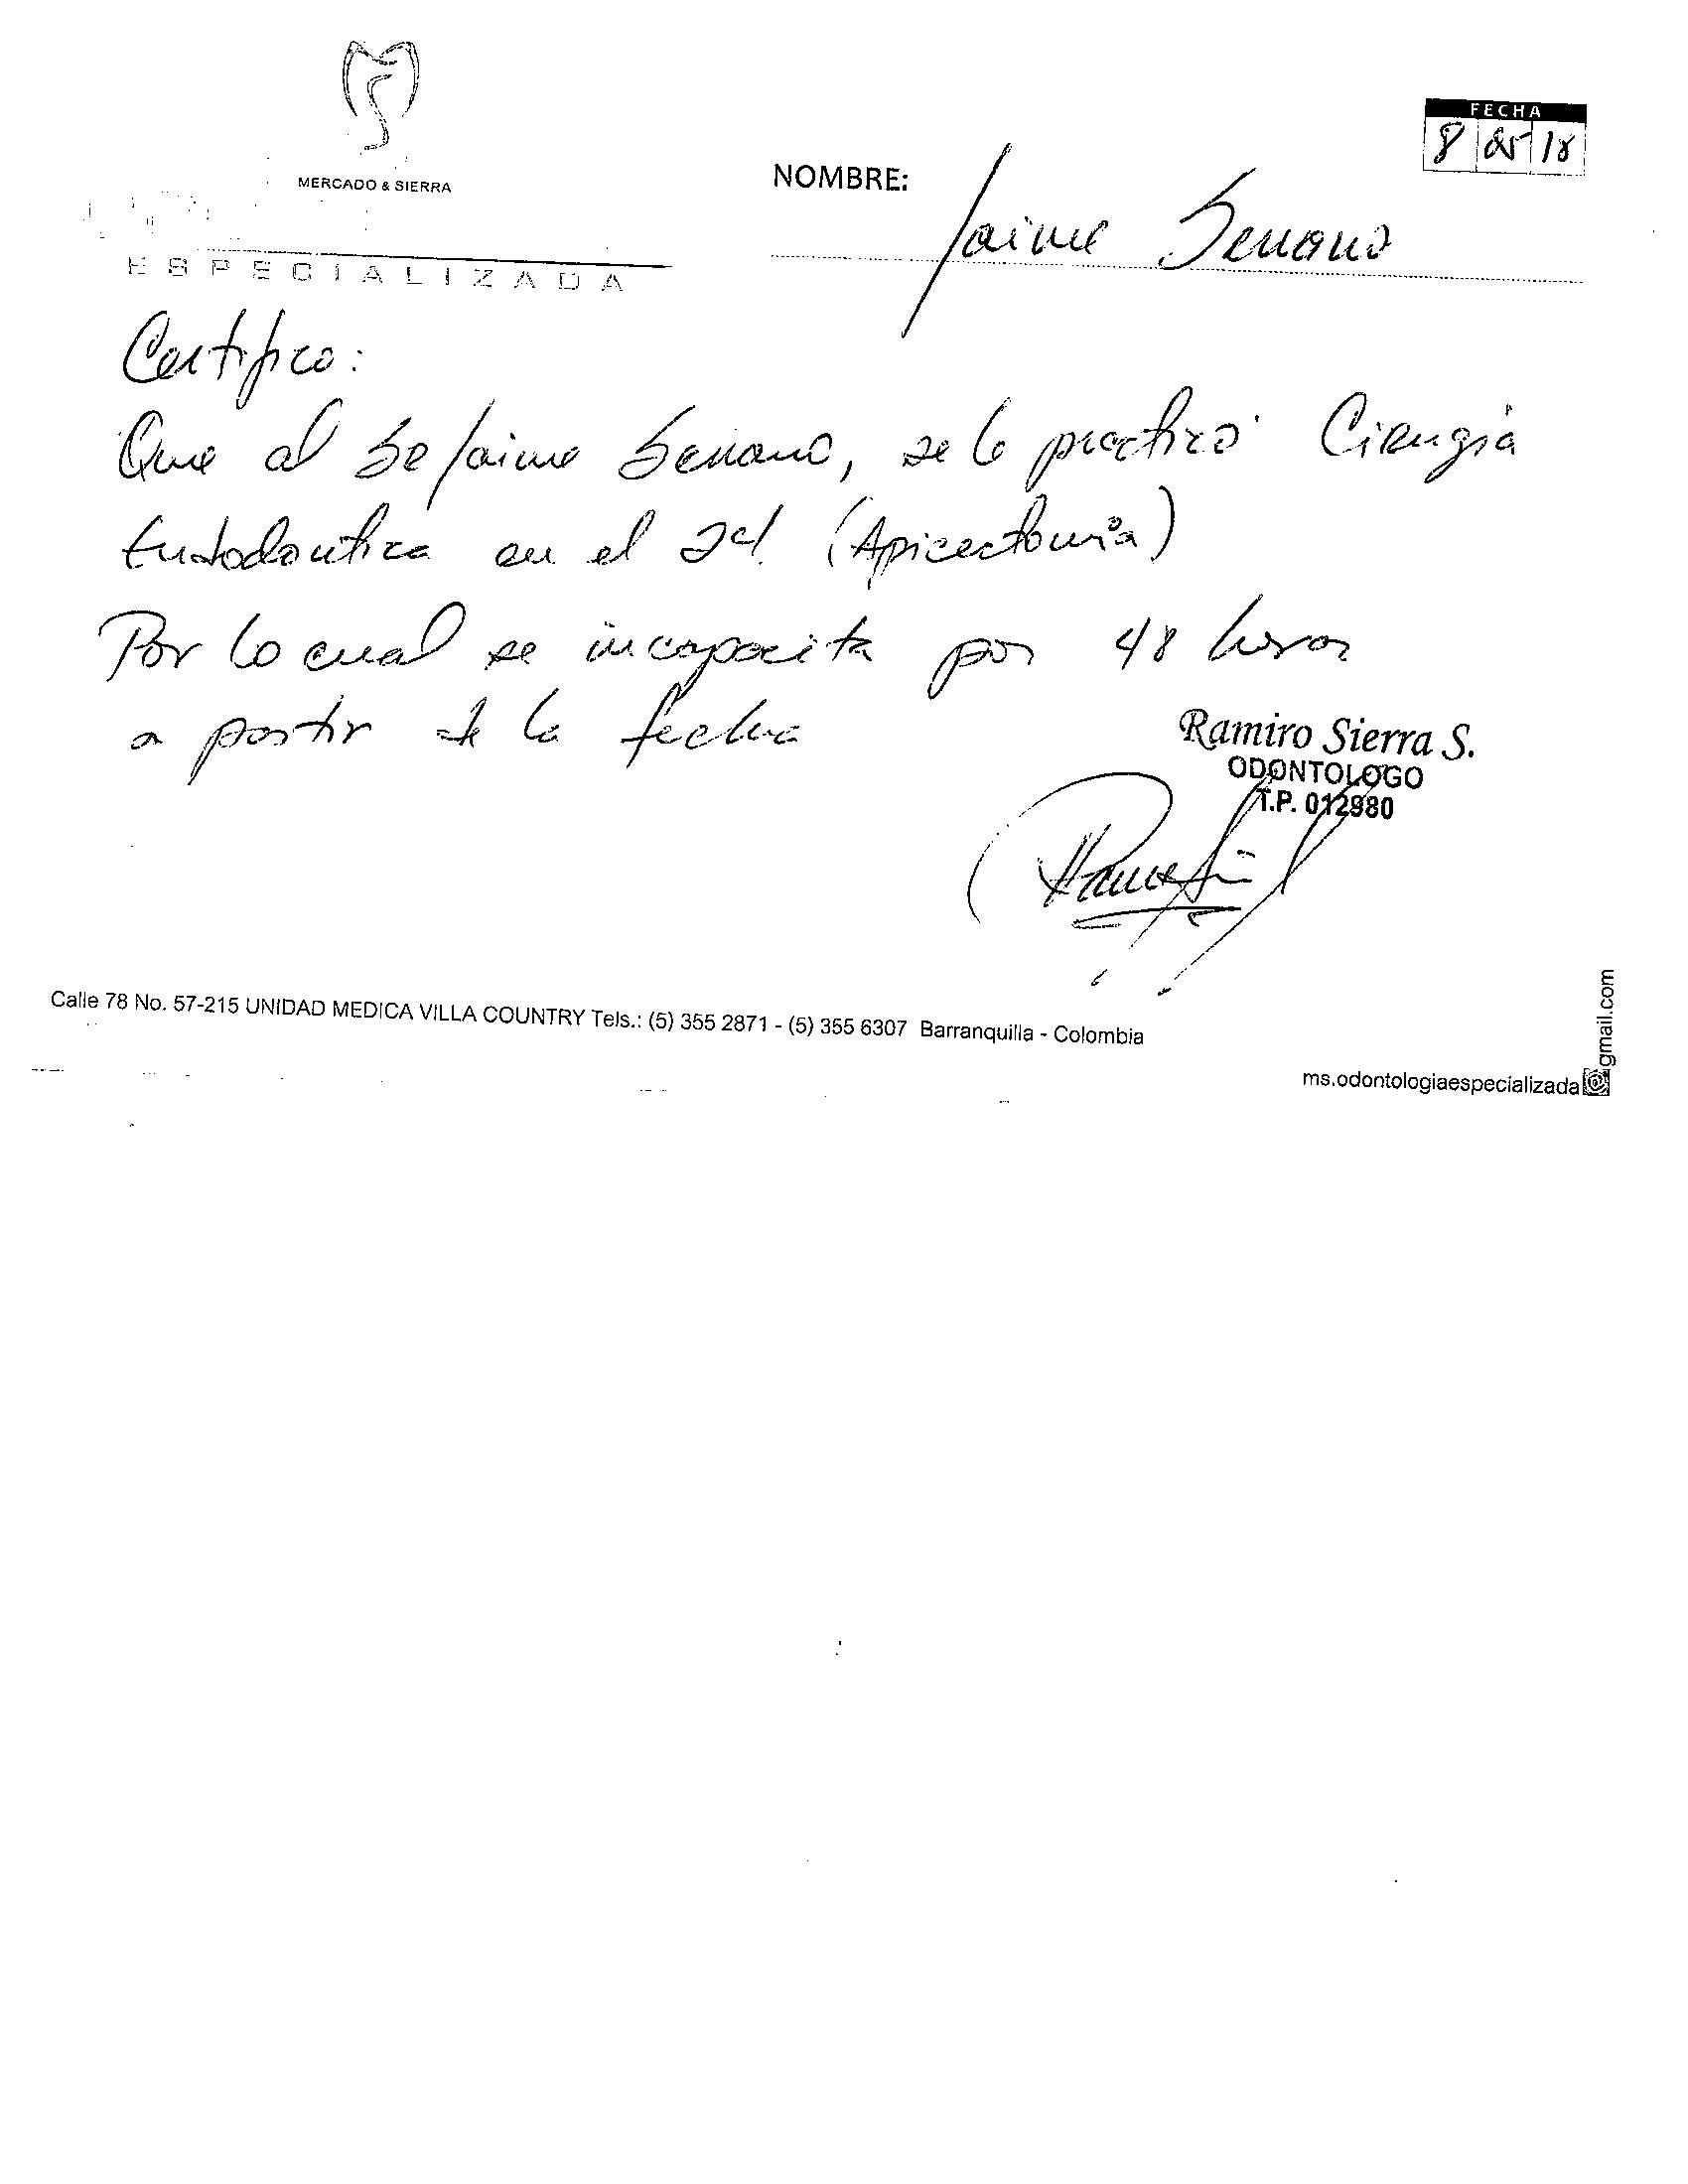 MERCADO & SIERRA
ESPECIALIZADA
FECHA
8 05 18
NOMBRE: Jaime Serrano
Certifico:
Que al Sr Jaime Serrano, se le practicó Cirugía
Endodontica en el 24. (Apicectomía)
Por lo cual se incapacita por 48 horas
a partir de la fecha
Ramiro Sierra S.
ODONTOLOGO
T.P. 012980
Calle 78 No. 57-215 UNIDAD MEDICA VILLA COUNTRY Tels.: (5) 355 2871 - (5) 355 6307 Barranquilla - Colombia
ms.odontologiaespecializada@gmail.com